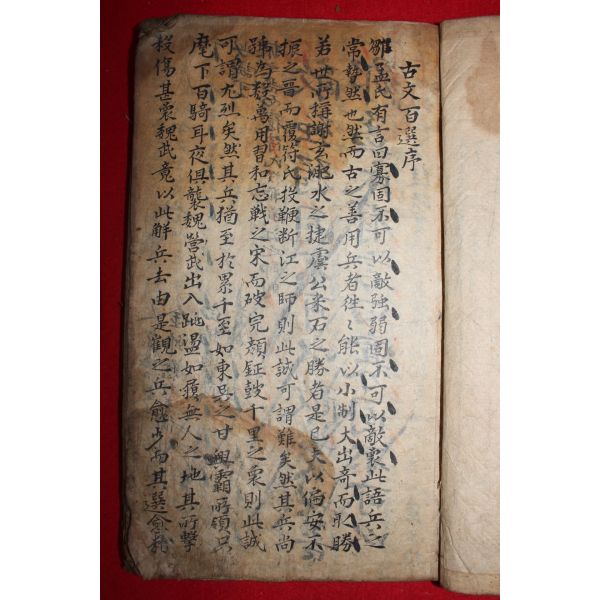 古文百選序
鄒孟氏有言曰寡固不可以敵強弱固不可以敵衆此語兵之
常勢然也然而古之善用兵者徃〻能以小制大出奇而取勝
若世所稱謝玄淝水之捷虞公采石之勝者是已夫以偏安不
振之晋而覆符氏投鞭断江之師則此誠可謂難矣然其兵尚
號為萬用習和忘戰之宋而破完顔鉦鼓千里之衆則此誠
可謂尤烈矣然其兵猶至於累千至如東吳之甘興霸所領只
麾下百騎耳夜俱襲魏營武出入盪如無人之地其所擊
殺傷甚衆魏武竟以此解兵去由是觀之兵愈少而其選愈精